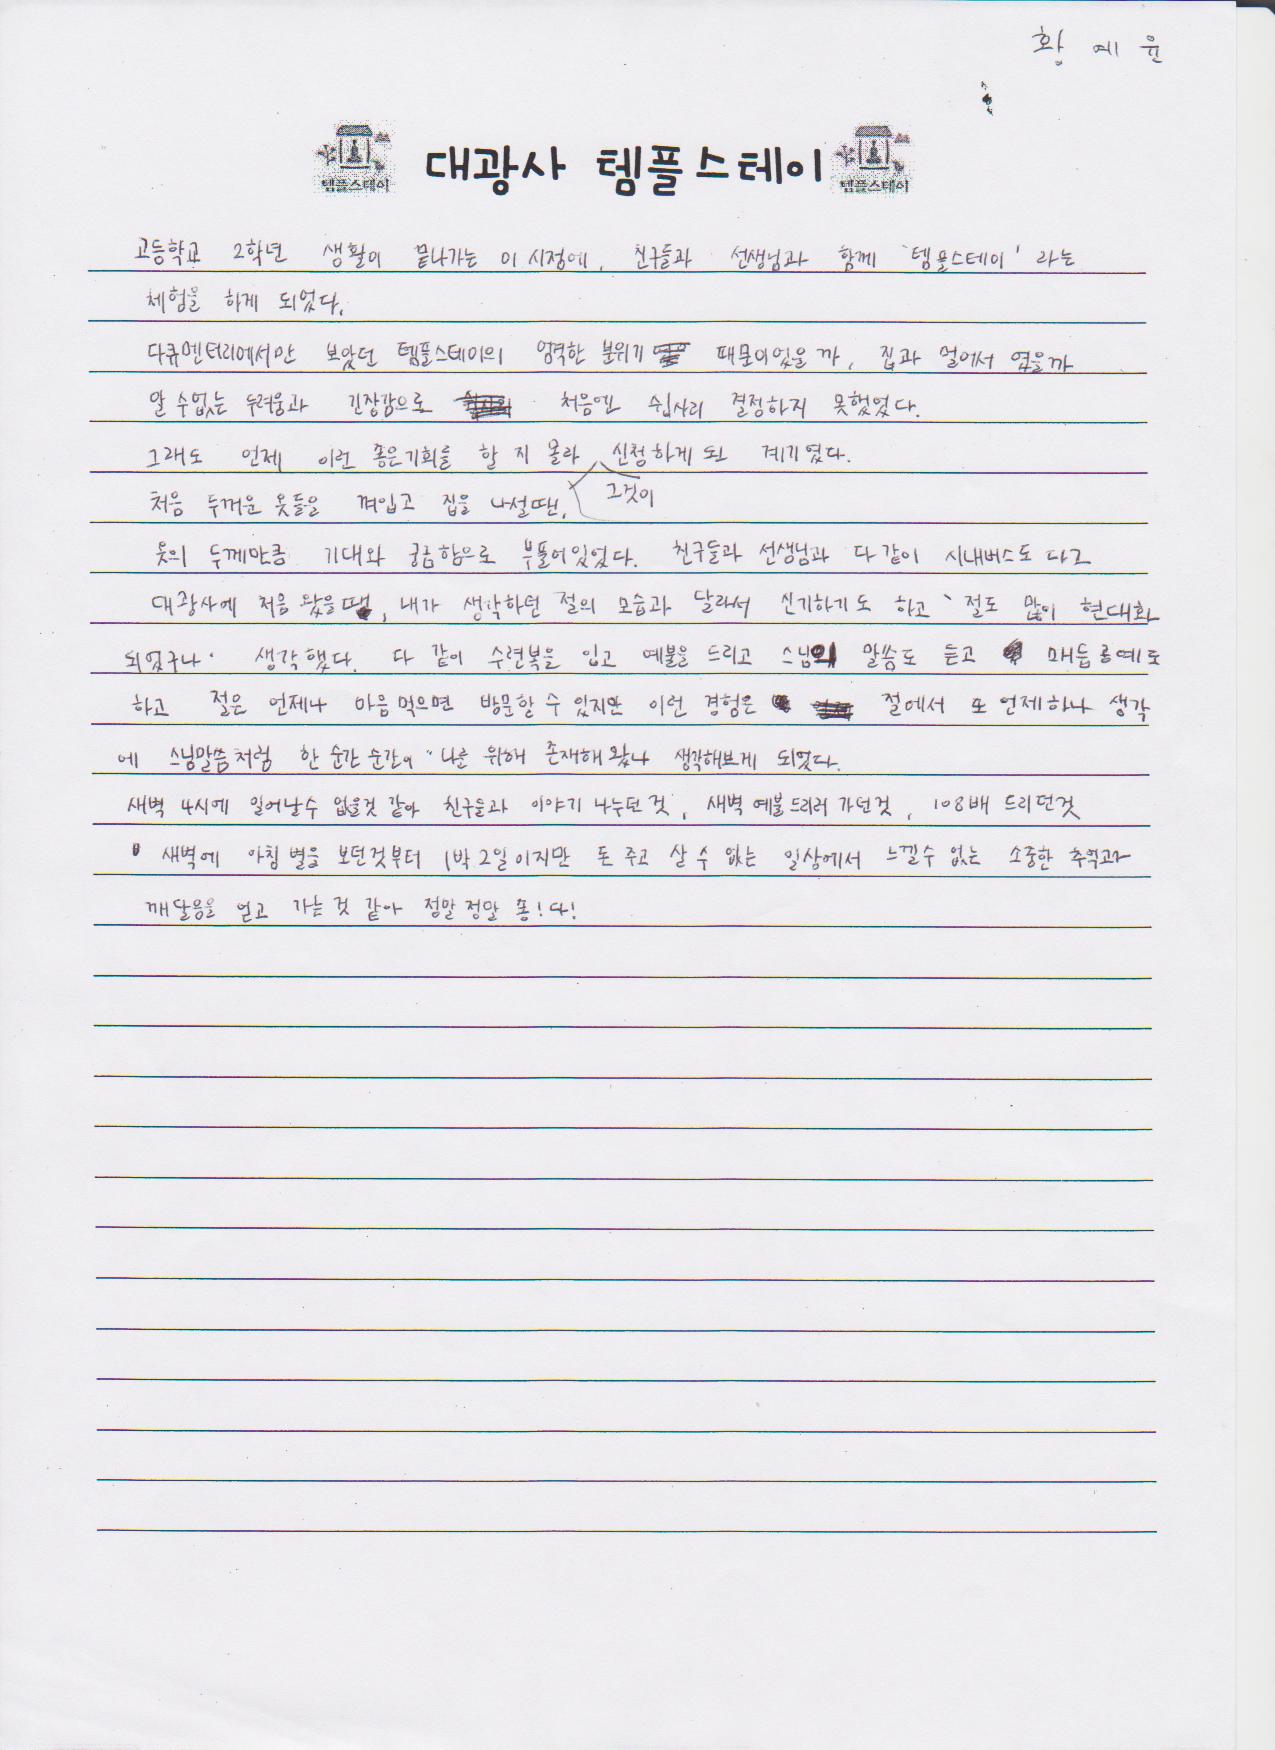 황예윤
템플스테이 대광사 템플스테이 템플스테이
고등학교 2학년 생활이 끝나가는 이 시점에, 친구들과 선생님과 함께 '템플스테이' 라는
체험을 하게 되었다.
다큐멘터리에서만 보았던 템플스테이의 엄격한 분위기 때문이었을까, 집과 멀어서 였을까
알 수없는 두려움과 긴장감으로 처음엔 쉽사리 결정하지 못했었다.
그래도 언제 이런 좋은기회를 할 지 몰라 신청하게 된 계기였다.
그것이
처음 두꺼운 옷들을 껴입고 집을 나설땐,
옷의 두께만큼 기대와 궁금함으로 부풀어있었다. 친구들과 선생님과 다같이 시내버스도 타고
대광사에 처음 왔을땐, 내가 생각하던 절의 모습과 달라서 신기하기도 하고 '절도 많이 현대화
되었구나' 생각했다. 다 같이 수련복을 입고 예불을 드리고 스님의 말씀도 듣고 매듭공예도
하고 절은 언제나 마음먹으면 방문할 수 있지만 이런 경험은 절에서 또 언제하나 생각
에 스님말씀처럼 한 순간 순간이 나를 위해 존재해왔나 생각해보게 되었다.
새벽 4시에 일어날수 없을것 같아 친구들과 이야기 나누던 것, 새벽 예불드리러 가던것, 108배 드리던것
새벽에 아침별을 보던것부터 1박2일이지만 돈 주고 살 수 없는 일상에서 느낄수 없는 소중한 추억과
깨달음을 얻고 가는 것 같아 정말 정말 좋!다!